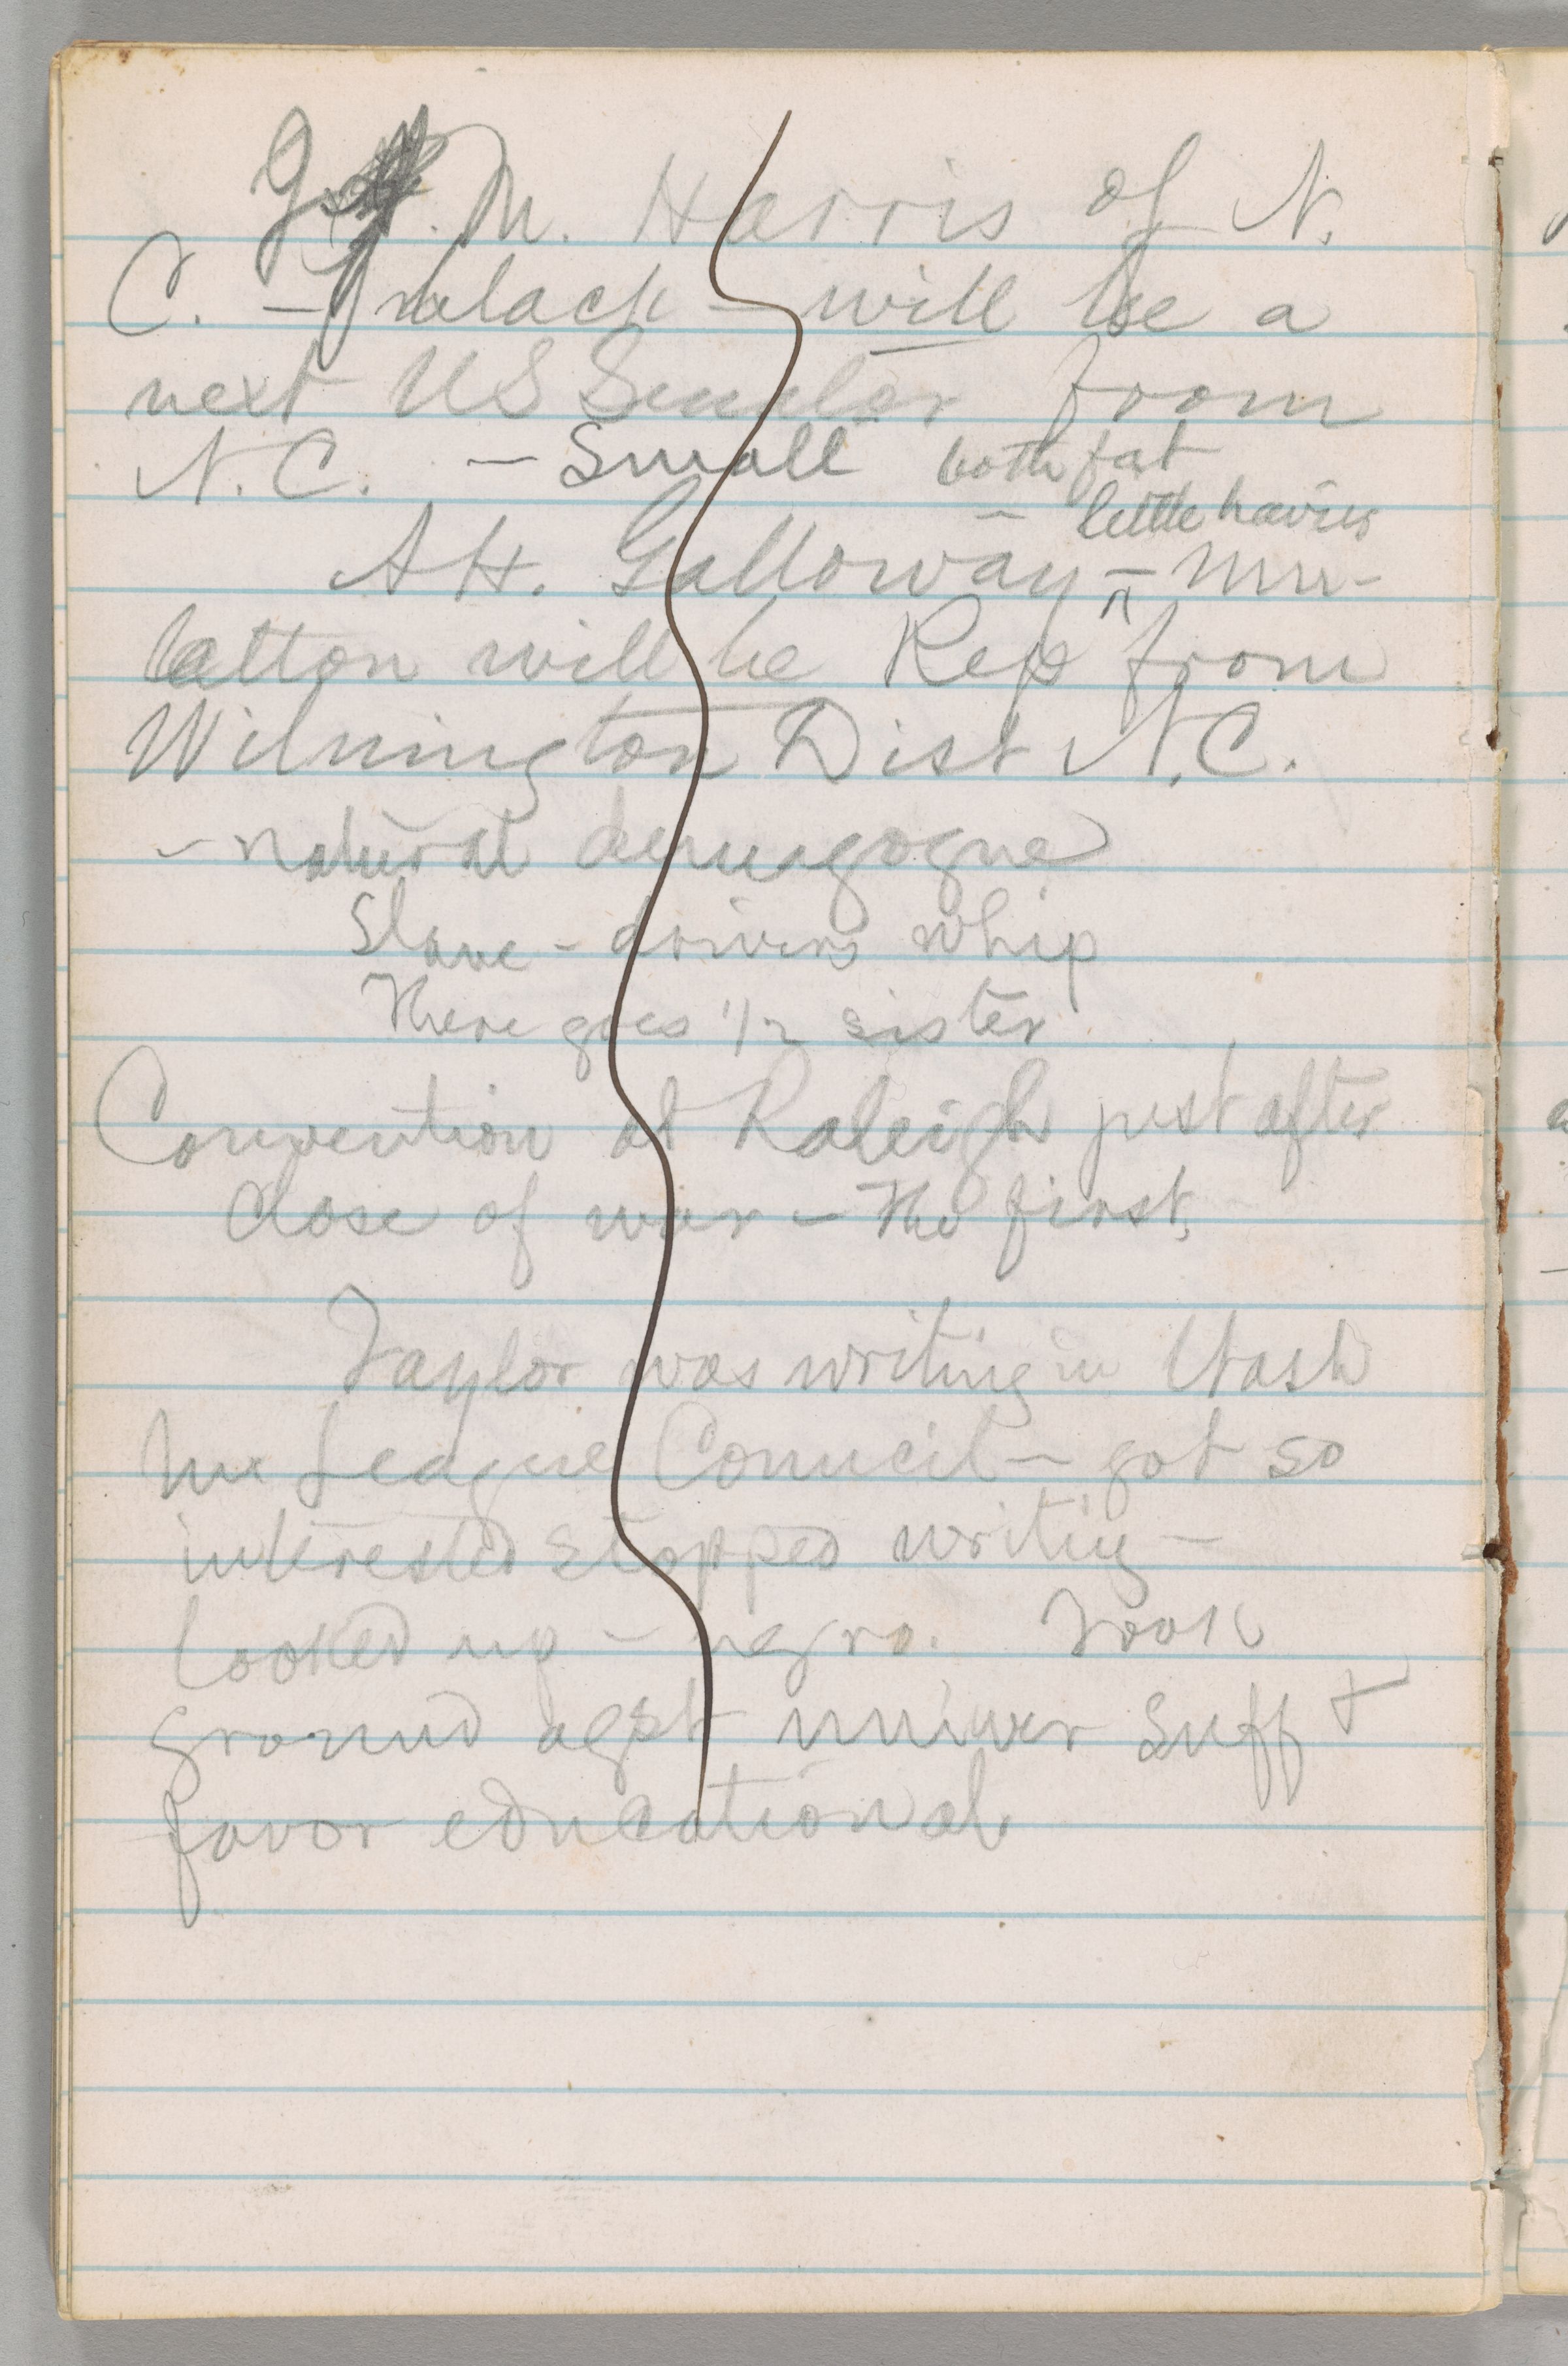 J. M. Harris of N.
C. – black – will be a
next US Senator from
N.C. – Small both fat
little heavier
A H. Galloway – Mu-
latton will be Rep from
Wilmington Dist N.C.
– natural demagogue
Slave-drivers whip
There goes 1/2 sister
Convention at Raleigh just after
close of war – The first.
Taylor was writing in Wash
League Council – got so
interested stopped writing –
looked up – negro. Took
ground agst univer suff &
favor educational